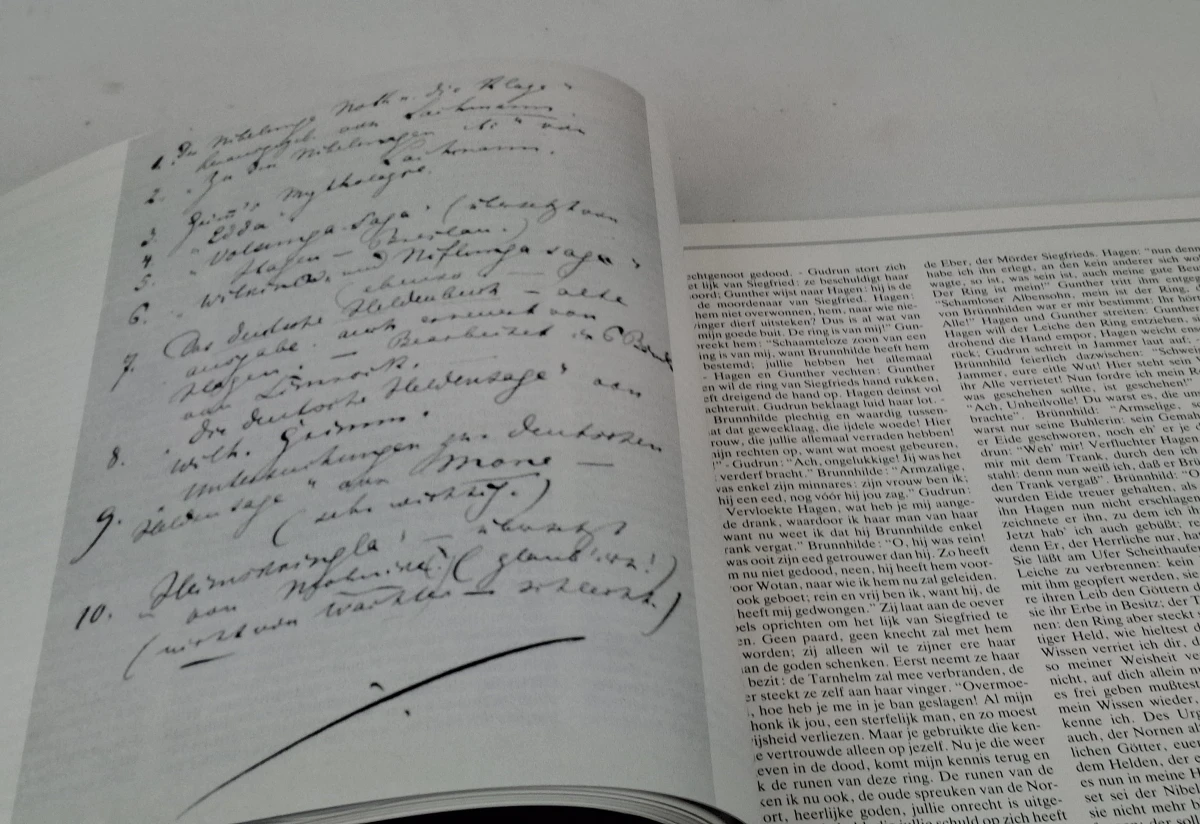 1. "Der Nibelunge Noth u. die Klage"
herausgegeb. von Lachmann.
2. "Zu den Nibelungen etc" von
Lachmann.
3. Grimm's Mythologie.
4. "Edda"
5. "Volsunga-Saga" (übersetzt von
Hagen – Breslau.)
6. "Wilkina- und Niflunga saga"
ebenso –
7. Das deutsche Heldenbuch – alte
ausgabe. auch erneuert von
Hagen. – Bearbeitet in 6 Bänden
von Simrock.
8. "die deutsche Heldensage" von
Wilh. Grimm.
9. "Untersuchungen zur deutschen
Heldensage" von Mone –
(sehr wichtig.)
10. "Heimskringla" – übersetzt
von Mohnike. (glaub' ich!)
(nicht von Wachter – schlecht.)
echtgenoot gedood. - Gudrun stort zich
et lijk van Siegfried: ze beschuldigt haar
oord; Gunther wijst naar Hagen: hij is de
de moordenaar van Siegfried. Hagen:
hem niet overwonnen, hem, naar wie nie-
vinger dierf uitsteken? Dus is al wat van
mijn goede buit. De ring is van mij!" Gun-
reekt hem: "Schaamteloze zoon van een
ing is van mij, want Brunnhilde heeft hem
bestemd; jullie hebben het allemaal
- Hagen en Gunther vechten: Gunther
en wil de ring van Siegfrieds hand rukken,
eft dreigend de hand op. Hagen deinst vol
achteruit. Gudrun beklaagt luid haar lot. -
Brunnhilde plechtig en waardig tussen-
at dat geweeklaag, die ijdele woede! Hier
rouw, die jullie allemaal verraden hebben!
ijn rechten op, want wat moest gebeuren,
!" - Gudrun: "Ach, ongelukkige! Jij was het
verderf bracht." Brunnhilde: "Armzalige,
was enkel zijn minnares: zijn vrouw ben ik;
hij een eed, nog vóór hij jou zag." Gudrun:
Vervloekte Hagen, wat heb je mij aange-
de drank, waardoor ik haar man van haar
want nu weet ik dat hij Brunnhilde enkel
rank vergat." Brunnhilde: "O, hij was rein!
was ooit zijn eed getrouwer dan hij. Zo heeft
m nu niet gedood, neen, hij heeft hem voor-
oor Wotan, naar wie ik hem nu zal geleiden.
ook geboet; rein en vrij ben ik, want hij, de
heeft mij gedwongen." Zij laat aan de oever
pels oprichten om het lijk van Siegfried te
. Geen paard, geen knecht zal met hem
worden; zij alleen wil te zijner ere haar
an de goden schenken. Eerst neemt ze haar
bezit: de Tarnhelm zal mee verbranden, de
er steekt ze zelf aan haar vinger. "Overmoe-
, hoe heb je me in je ban geslagen! Al mijn
honk ik jou, een sterfelijk man, en zo moest
ijsheid verliezen. Maar je gebruikte die ken-
e vertrouwde alleen op jezelf. Nu je die weer
even in de dood, komt mijn kennis terug en
k de runen van deze ring. De runen van de
ken ik nu ook, de oude spreuken van de Nor-
ort, heerlijke goden, jullie onrecht is uitge-
jullie schuld op zich heeft
de Eber, der Mörder Siegfrieds. Hagen: "nun denn
habe ich ihn erlegt, an den kein anderer sich wo
wagte, so ist, was sein ist, auch meine gute Beu
Der Ring ist mein!" Gunther tritt ihm entgeg
"Schamloser Albensohn, mein ist der Ring,
von Brünnhilden war er mir bestimmt: Ihr
Alle!" Hagen und Gunther streiten: Gunther
Hagen will der Leiche den Ring entziehen, s
drohend die Hand empor; Hagen weicht ent
rück; Gudrun schreit in Jammer laut auf; -
Brünnhild feierlich dazwischen: "Schwe
Jammer, eure eitle Wut! Hier steht sein
ihr Alle verrietet! Nun fordre ich mein Re
was geschehen sollte, ist geschehen!"
"Ach, Unheilvolle! Du warst es, die un
brachte". Brünnhild: "Armselige, s
warst nur seine Buhlerin: sein Gemah
er Eide geschworen, noch eh' er je
drun: "Weh' mir! Verfluchter Hagen
mir mit dem Trank, durch den ich
stahl: denn nun weiß ich, daß er Brü
den Trank vergaß". Brünnhild: "O
wurden Eide treuer gehalten, als
ihn Hagen nun nicht erschlage
zeichnete er ihn, zu dem ich ih
Jetzt hab' ich auch gebüßt; re
denn Er, der Herrliche nur, ha
Sie läßt am Ufer Scheithaufe
Leiche zu verbrennen: kein
mit ihm geopfert werden, sie
re ihren Leib den Göttern
sie ihr Erbe in Besitz; der T
nen: den Ring aber steckt
tiger Held, wie hieltest d
Wissen verriet ich dir, d
so meiner Weisheit ve
nicht, auf dich allein
es frei geben mußtest
mein Wissen wieder,
kenne ich. Des Urg
auch, der Nornen al
lichen Götter, eue
dem Helden, der e
es nun in meine H
set sei der Nibel
sie nicht mehr